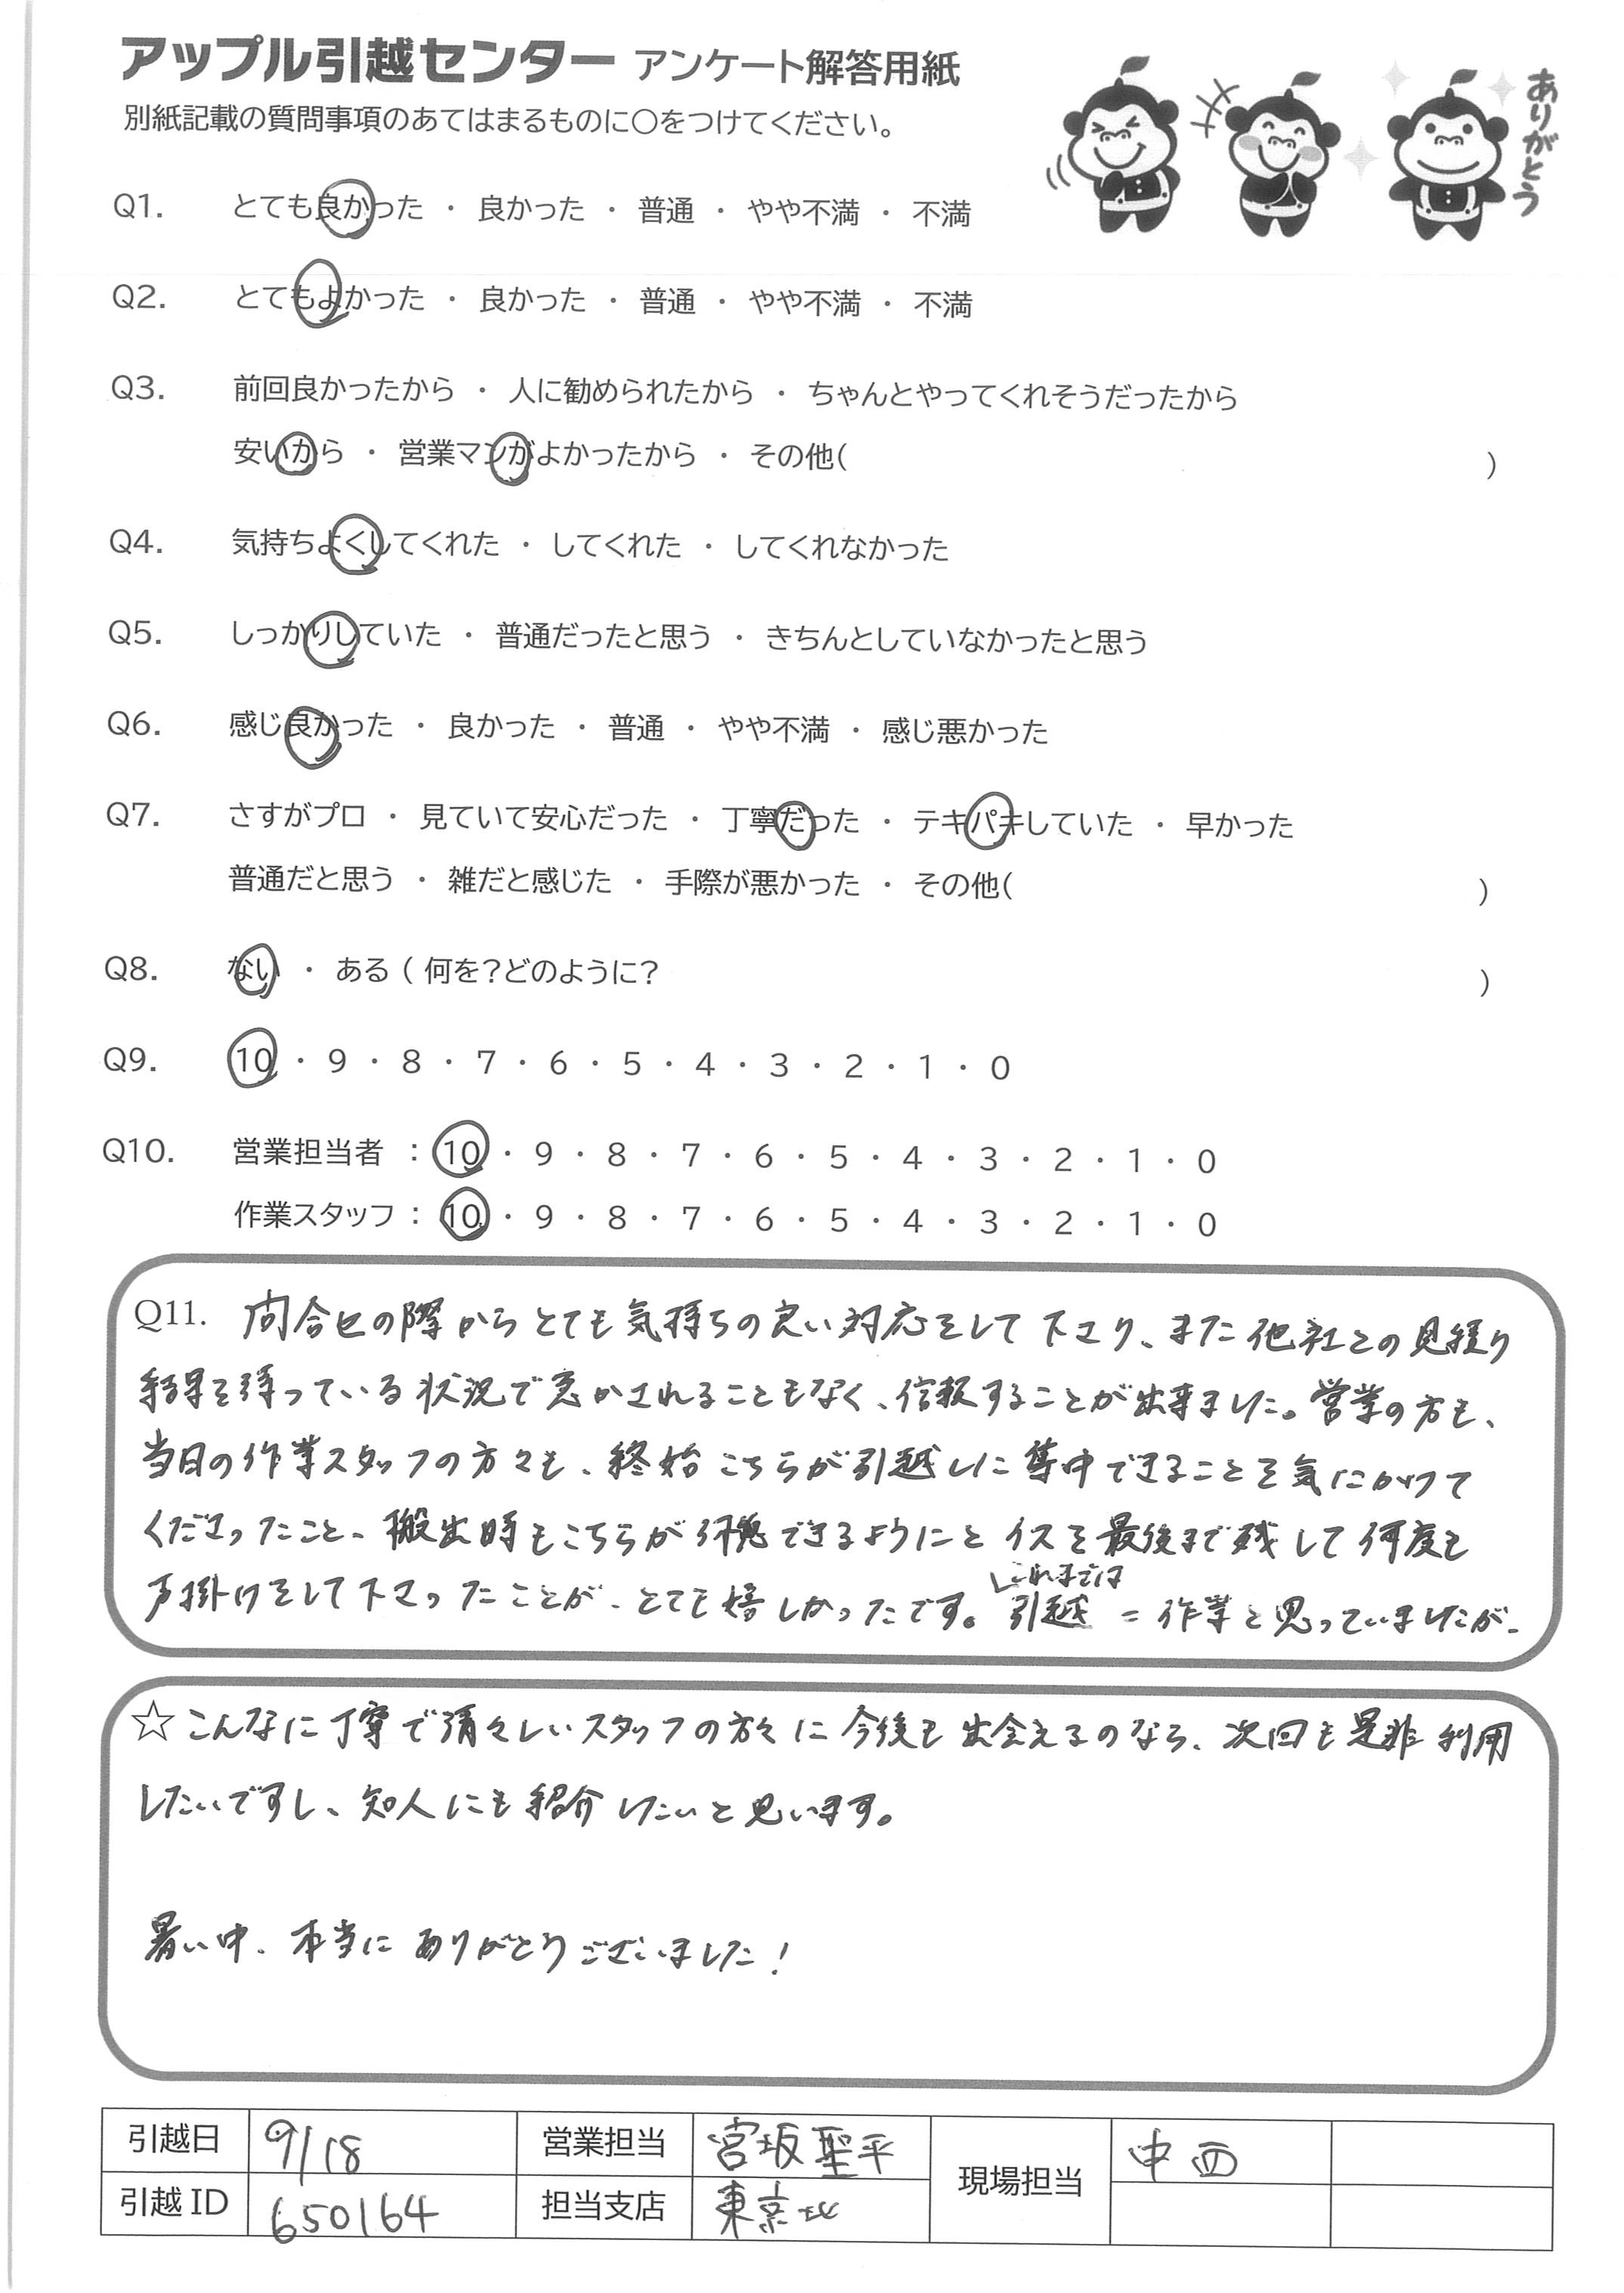 アップル引越センター アンケート解答用紙
別紙記載の質問事項のあてはまるものに○をつけてください。
ありがとう
Q1. とても良かった ・ 良かった ・ 普通 ・ やや不満 ・ 不満
Q2. とてもよかった ・ 良かった ・ 普通 ・ やや不満 ・ 不満
Q3. 前回良かったから ・ 人に勧められたから ・ ちゃんとやってくれそうだったから
安いから ・ 営業マンがよかったから ・ その他( )
Q4. 気持ちよくしてくれた ・ してくれた ・ してくれなかった
Q5. しっかりしていた ・ 普通だったと思う ・ きちんとしていなかったと思う
Q6. 感じ良かった ・ 良かった ・ 普通 ・ やや不満 ・ 感じ悪かった
Q7. さすがプロ ・ 見ていて安心だった ・ 丁寧だった ・ テキパキしていた ・ 早かった
普通だと思う ・ 雑だと感じた ・ 手際が悪かった ・ その他( )
Q8. ない ・ ある ( 何を?どのように? )
Q9. 10 ・ 9 ・ 8 ・ 7 ・ 6 ・ 5 ・ 4 ・ 3 ・ 2 ・ 1 ・ 0
Q10. 営業担当者 : 10 ・ 9 ・ 8 ・ 7 ・ 6 ・ 5 ・ 4 ・ 3 ・ 2 ・ 1 ・ 0
作業スタッフ : 10 ・ 9 ・ 8 ・ 7 ・ 6 ・ 5 ・ 4 ・ 3 ・ 2 ・ 1 ・ 0
Q11. 問合せの際からとても気持ちの良い対応をして下さり、また他社との見積り
結果を待っている状況で急かされることもなく、信頼することが出来ました。営業の方も、
当日の作業スタッフの方々も、終始こちらが引越しに集中できることを気にかけて
くださったこと、搬出時もこちらが待機できるようにとイスを最後まで残して何度も
声掛けをして下さったことが、とても嬉しかったです。これまでは引越=作業と思っていましたが、
☆こんなに丁寧で清々しいスタッフの方々に今後も出会えるのなら、次回も是非利用
したいですし、知人にも紹介したいと思います。
暑い中、本当にありがとうございました!
引越日 9/18 営業担当 宮坂聖平 現場担当 中西
引越ID 650164 担当支店 東京北